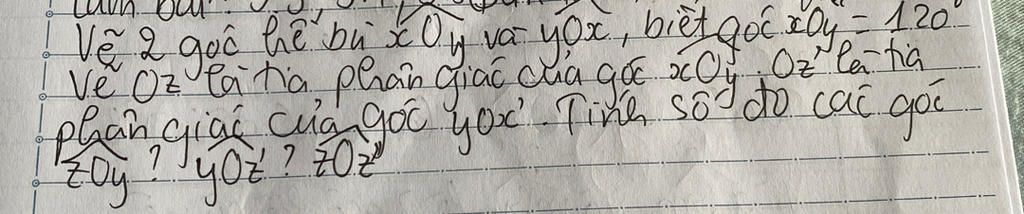 Vẽ 2 góc kề bù xOy và yOx', biết góc xOy = 120°
Vẽ Oz là tia phân giác của góc xOy. Oz' là tia
phân giác của góc yOx'. Tính số đo các góc
zOy ? yOz' ? zOz'